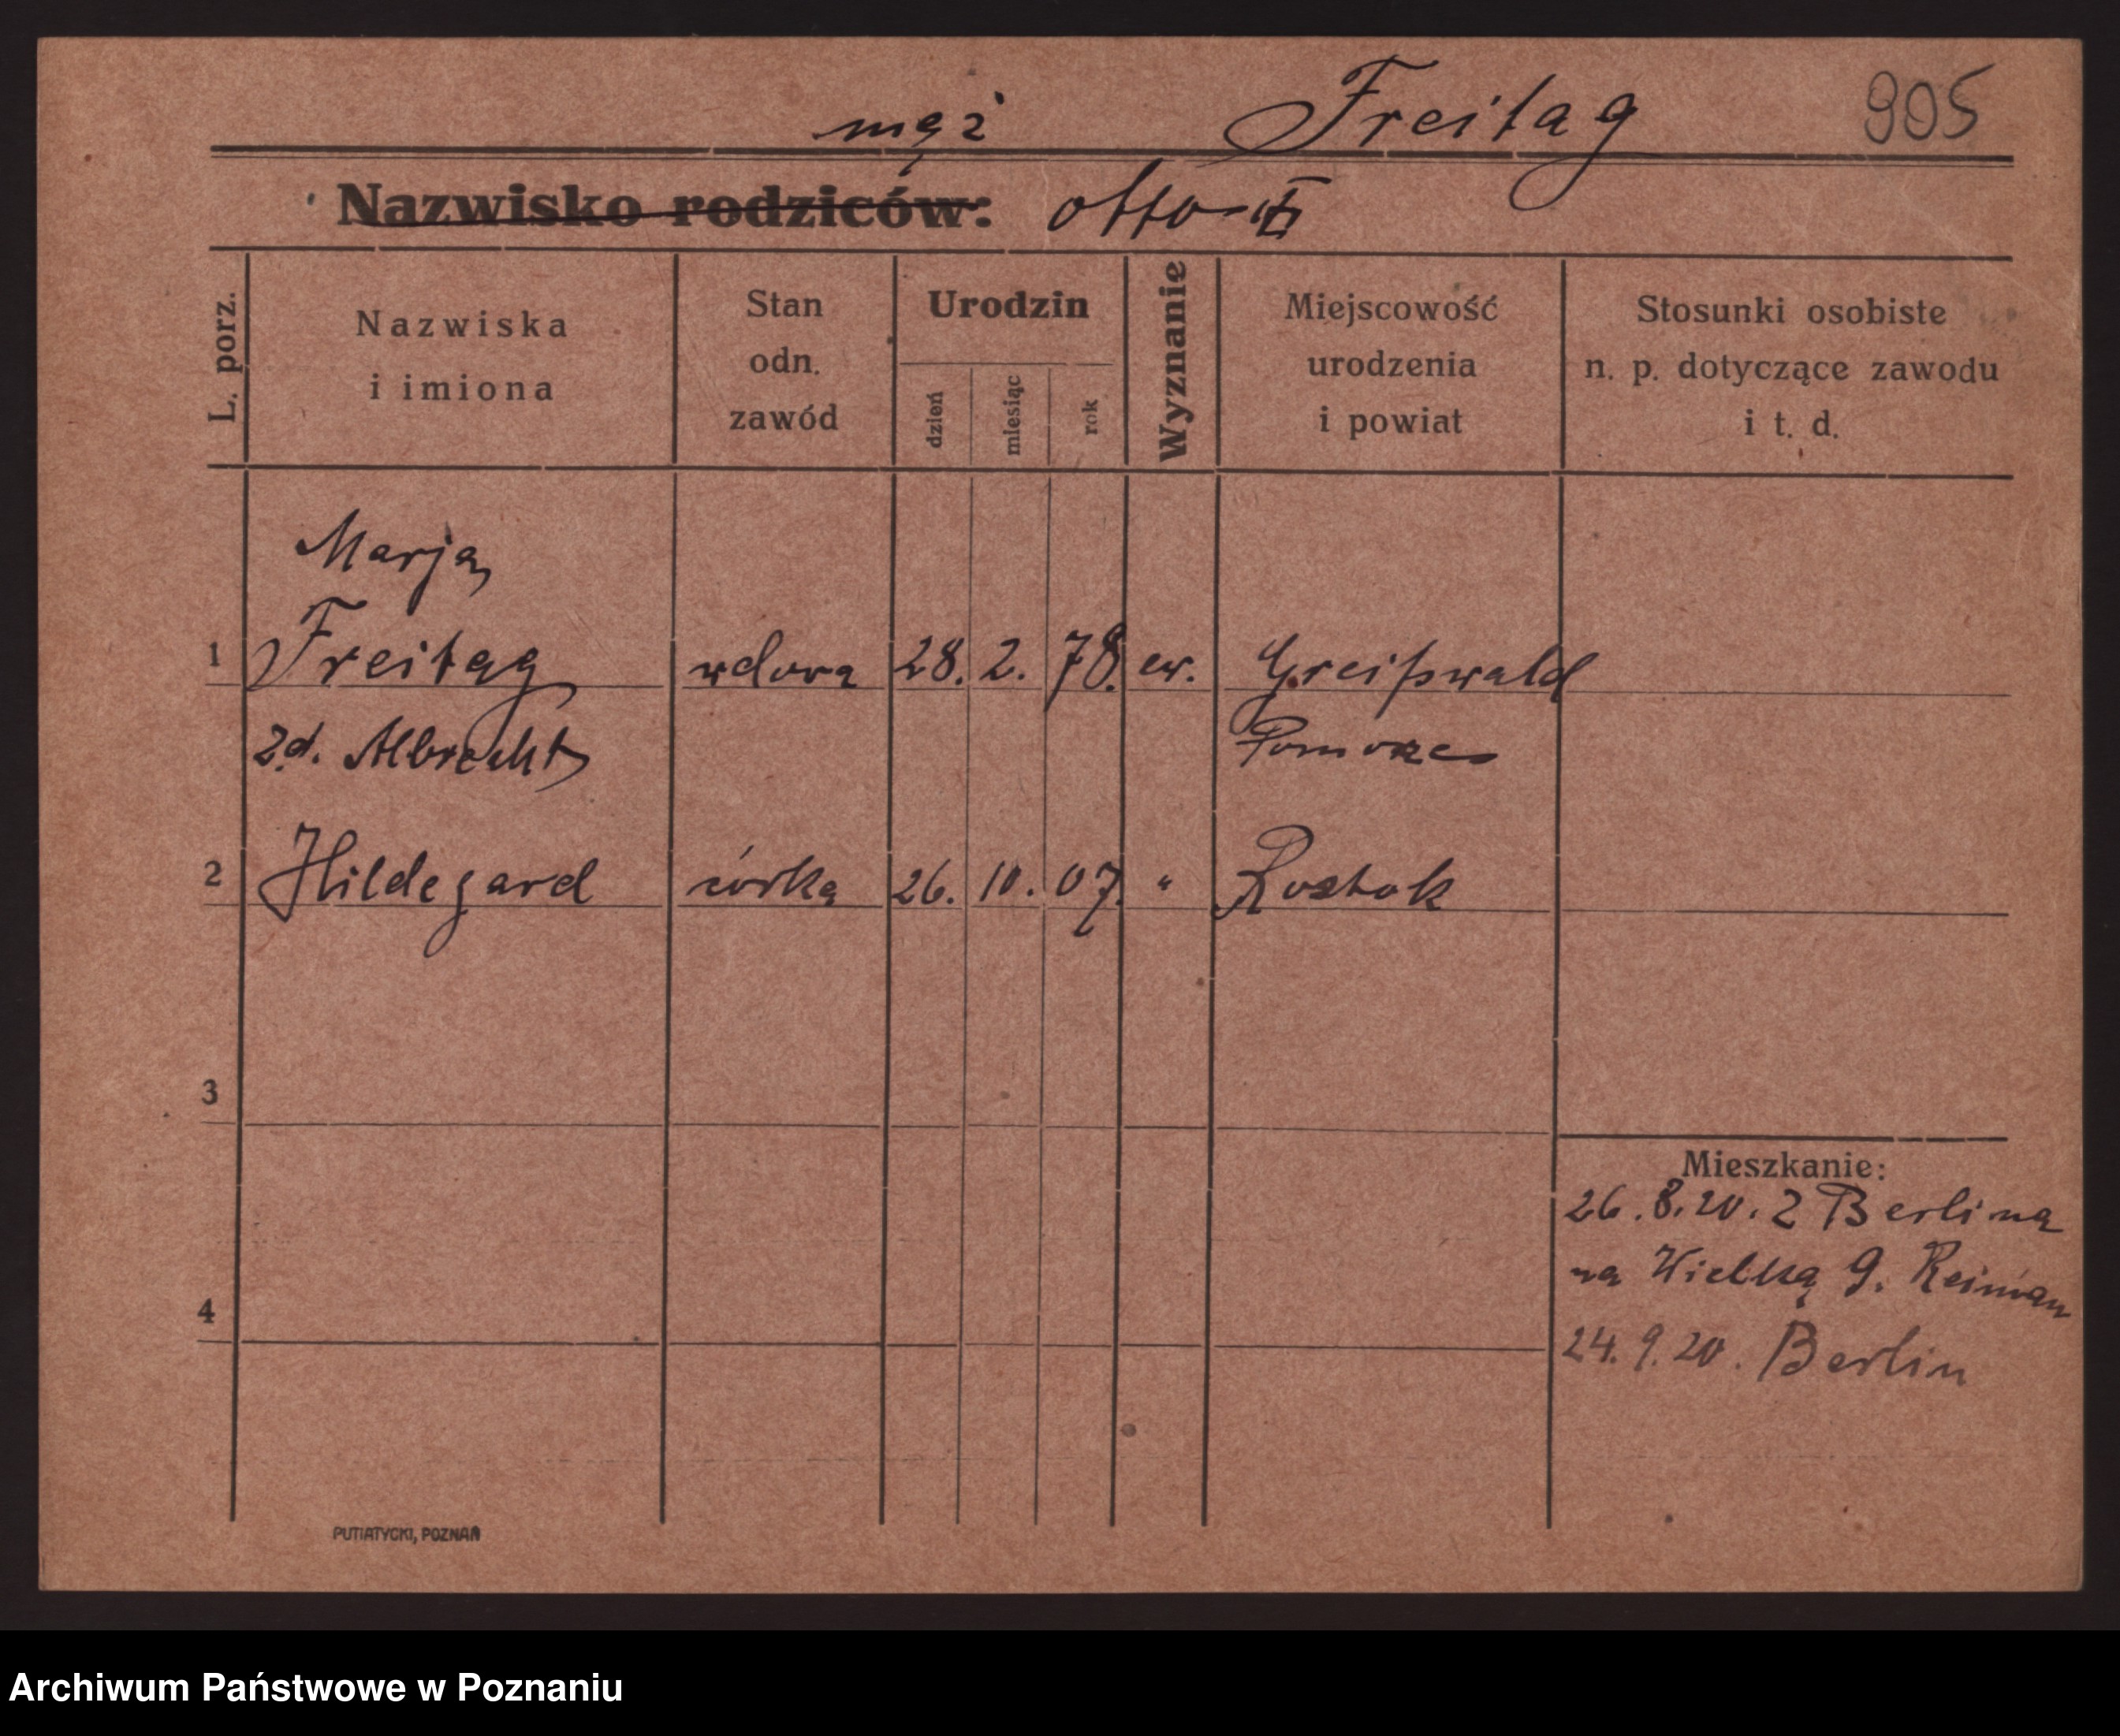 mąż Freitag 905
Nazwisko rodziców: Otto
L. porz.
Nazwiska
i imiona
Stan
odn.
zawód
Urodzin
dzień
miesiąc
rok
Wyznanie
Miejscowość
urodzenia
i powiat
Stosunki osobiste
n. p. dotyczące zawodu
i t. d.
Marja
1 Freitag wdowa 28. 2. 78. ew. Greifswald
z.d. Albrecht Pomorze
2 Hildegard córka 26. 10. 07. " Rostok
3
Mieszkanie:
26.8.20. z Berlina
na Wielką 9. Reiman
4
24.9.20. Berlin
PUTIATYCKI, POZNAŃ
Archiwum Państwowe w Poznaniu